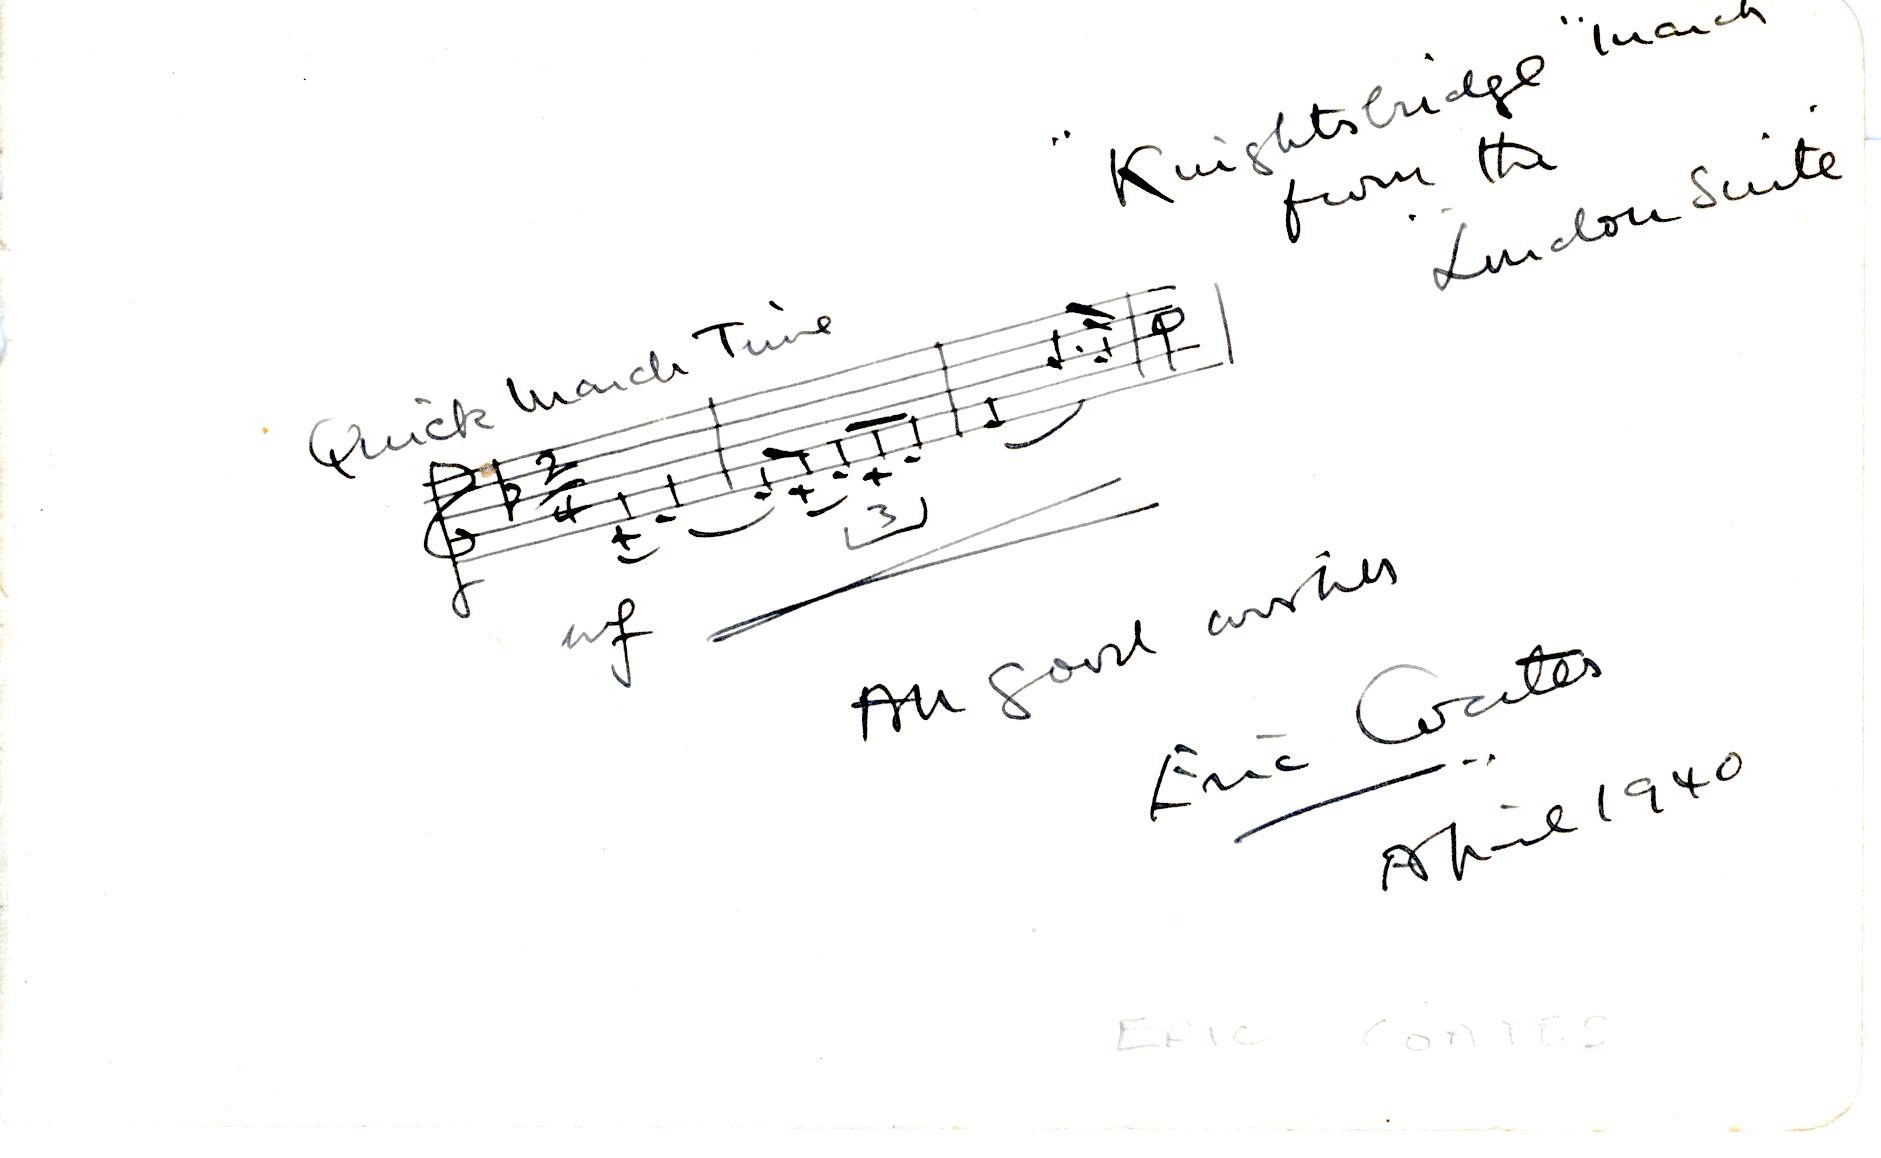 "Knightsbridge" March
from the
"London Suite"
Quick March Time
2
4
3
mf
All good wishes
Eric Coates
April 1940
ERIC COATES